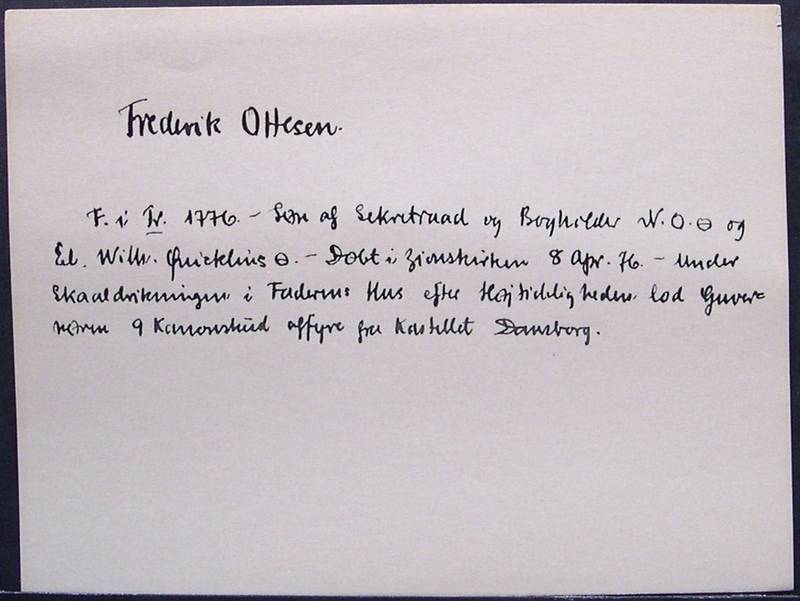 Frederik Ottesen.
F. i Tr. 1776. – Søn af Sekretraad og Bogholder N. O. ⊖ og
El. Wilh. Quicklius ⊖. – Døbt i Zionskirken 8 Apr. 76. – Under
Skaaldrikningen i Faderens Hus efter Højtidligheden lod Guver=
nøren 9 Kanonskud affyre fra Kastellet Dansborg.